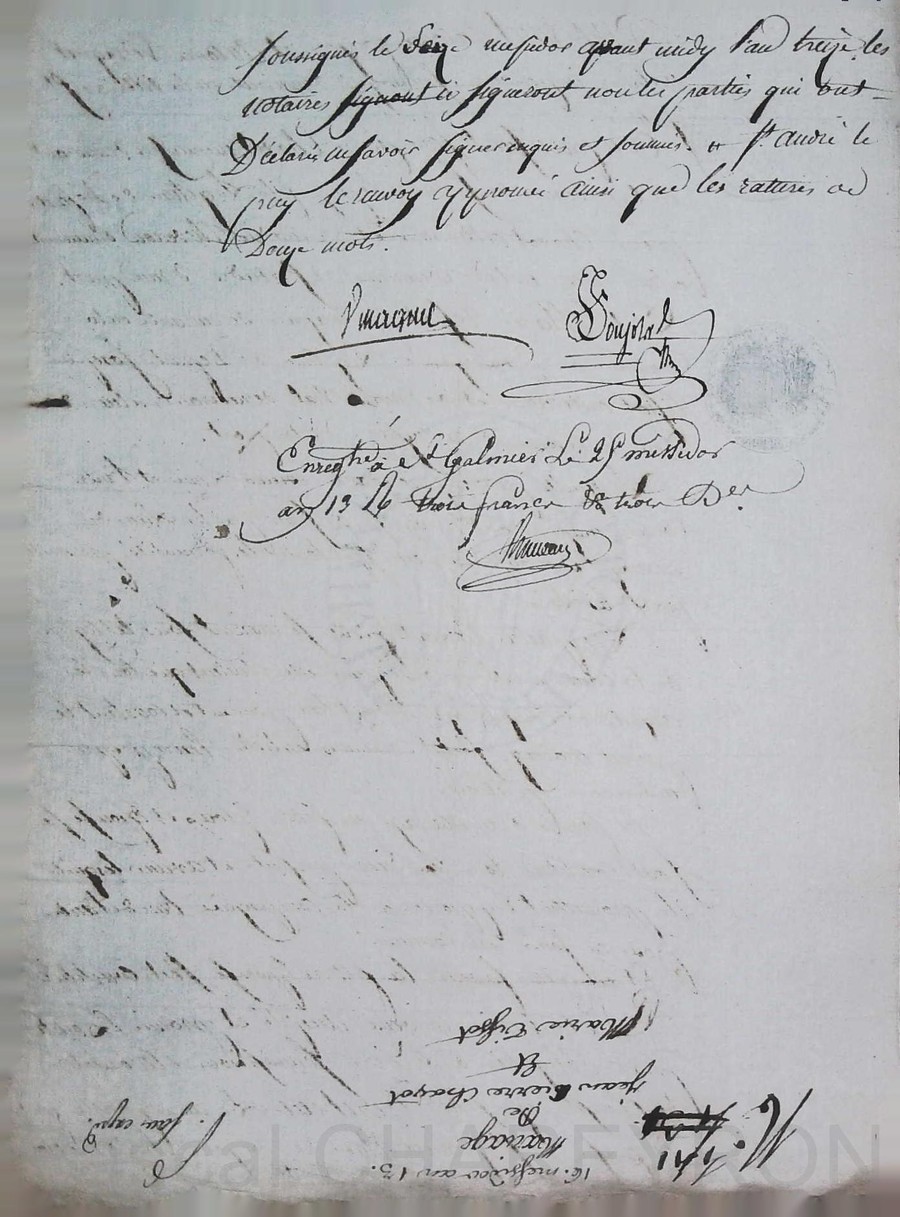 soussignés le Seize messidor avant midy l'an treize les
notaires signont ici signeront non les parties qui ont
Déclaré ne savoir signer enquis et sommés. St. andré le
puy le renvoy approuvé ainsi que les ratures de
Douze mots.
Enregtré à St Galmier Le 25 messidor
an 13 trois francs & trois Des
16. messidor an 13.
Mariage
De
Jean Pierre Chazot
Et
Marie Tissot
N. 141
Pascal CHAPEYRON